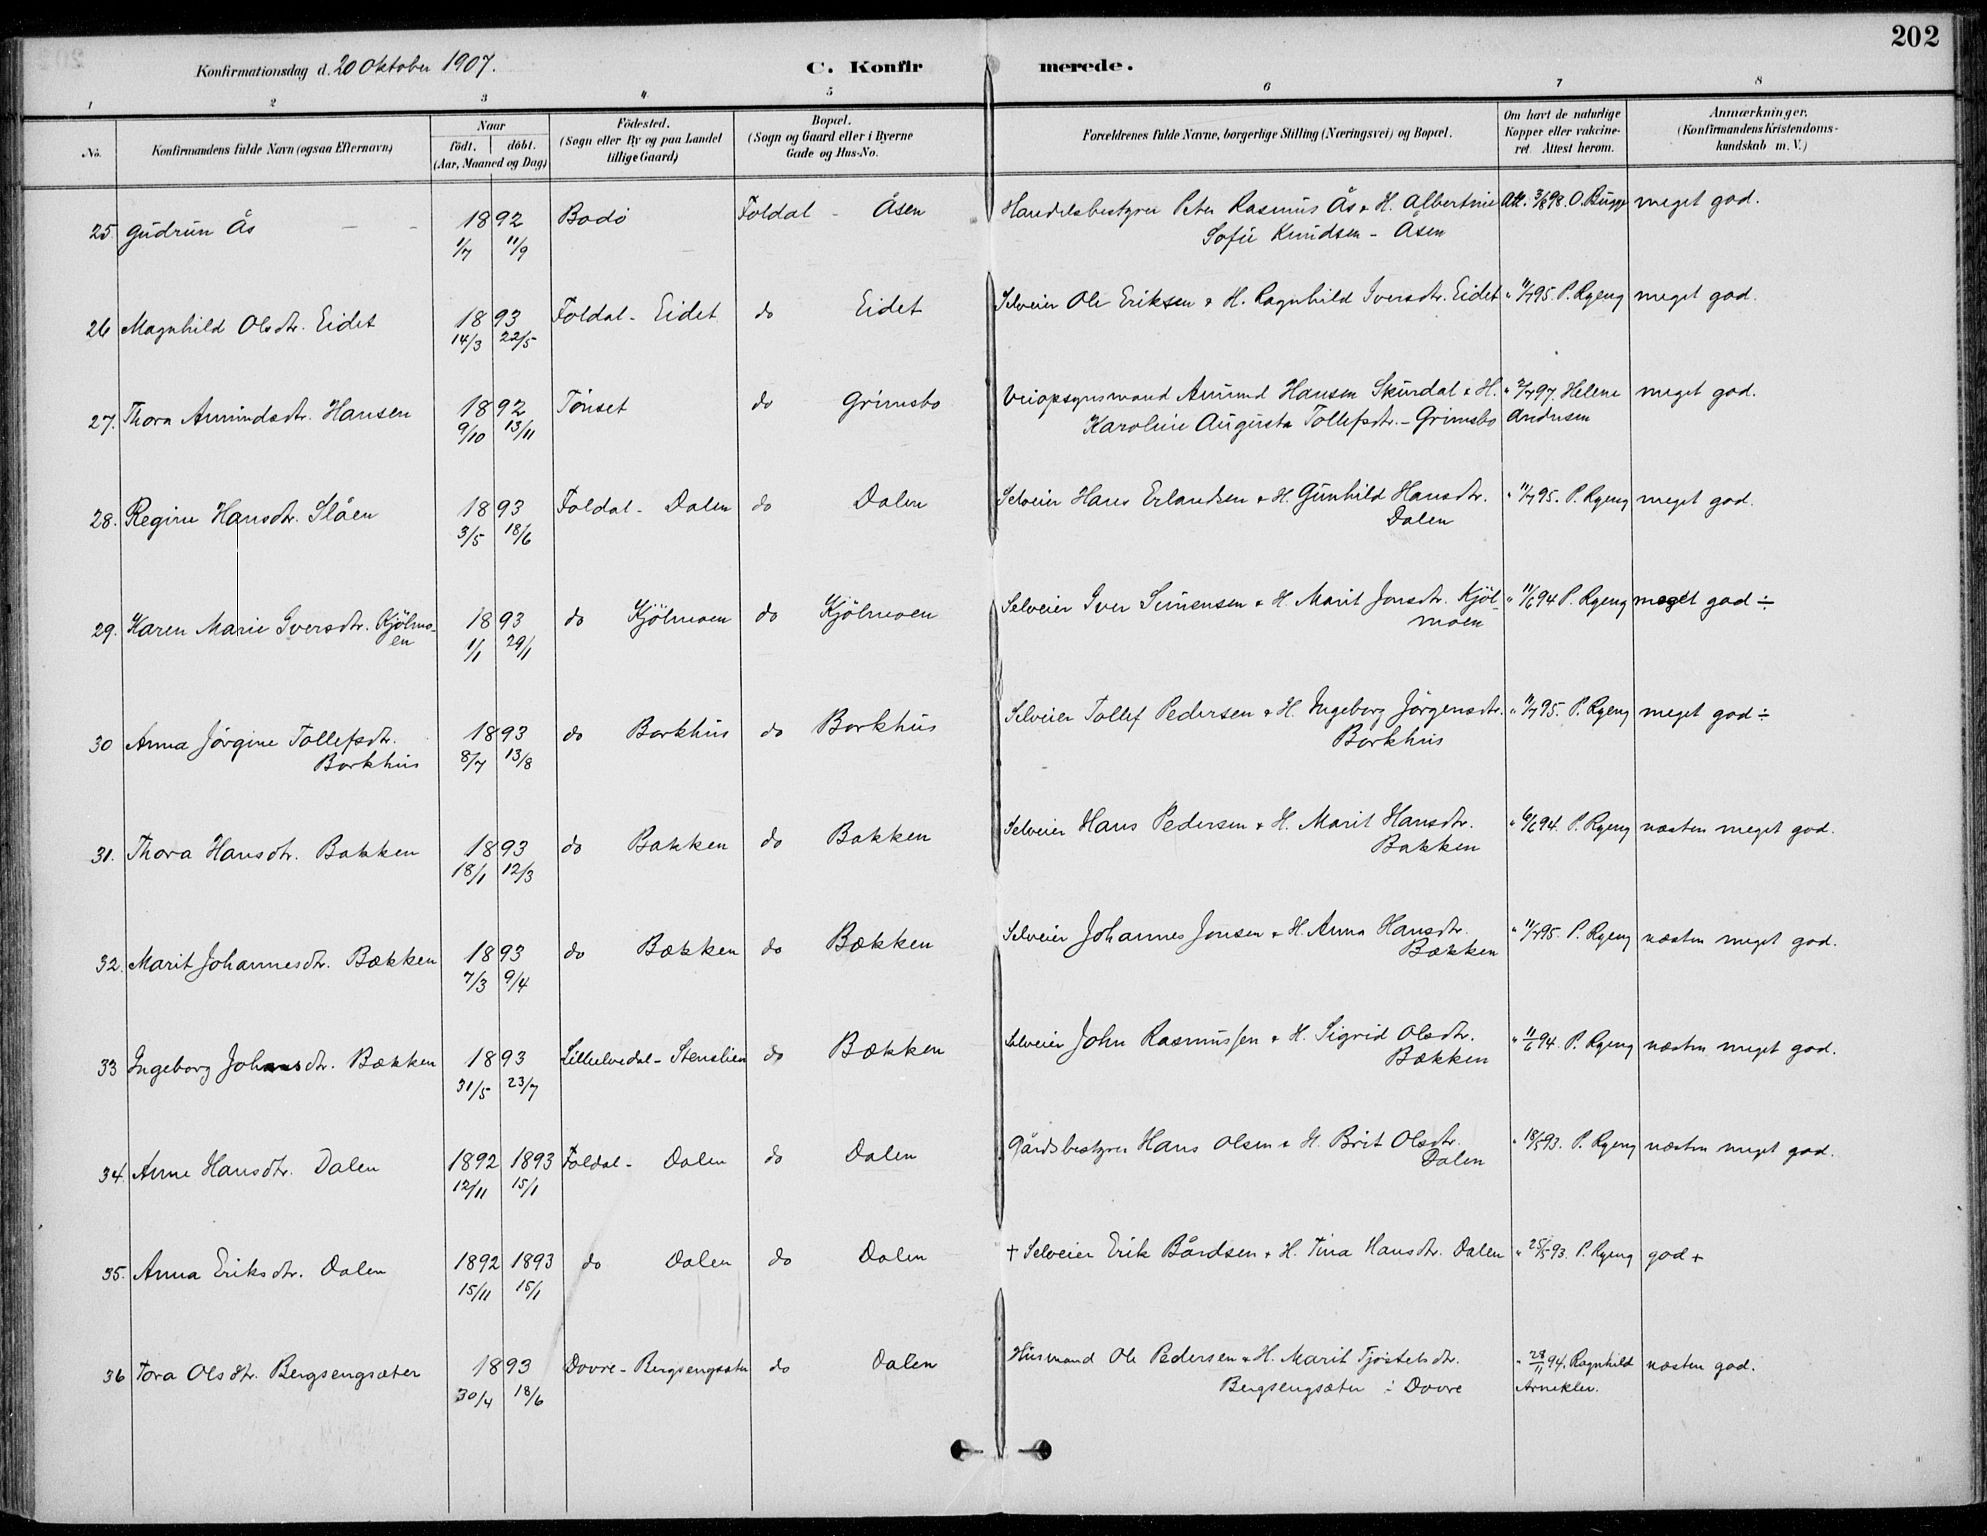 202
Konfirmationsdag d. 20 Oktober 1907.
C. Konfirmerede.
1 2 3 4 5 6 7 8
No. Konfirmandens fulde Navn (ogsaa Efternavn) Naar födt. döbt. (Aar, Maaned og Dag) Födested. (Sogn eller By og paa Landet tillige Gaard) Bopæl. (Sogn og Gaard eller i Byerne Gade og Hus-No. Forældrenes fulde Navne, borgerlige Stilling (Næringsvei) og Bopæl. Om havt de naturlige Kopper eller vakcineret. Attest herom. Anmærkninger. (Konfirmandens Kristendomskundskab m. V.)
25 Gudrun Ås 1892 Bodö Foldal - Åsen Handelsbestyrer Peter Rasmus Ås & H. Albertine Att. 3/8 98. O. Bugge meget god.
1/7 11/9 Sofie Knudsen - Åsen
26 Magnhild Olsdtr. Eidet 1893 Foldal - Eidet do Eidet Selveier Ole Eriksen & H. Ragnhild Iversdtr. Eidet " 11/7 95. P. Ryeng meget god.
14/3 22/5
27. Thora Amundsdtr. Hansen 1892 Tönset do Grimsbo Veiopsynsmand Amund Hansen Skurdal & H. " 2/7 97. Helene meget god.
9/10 13/11 Karoline Augusta Tollefsdtr. - Grimsbo Andresen
28. Regine Hansdtr. Slåen 1893 Foldal - Dalen do Dalen Selveier Hans Erlandsen & H. Gunhild Hansdtr. " 11/7 95. P. Ryeng meget god.
3/5 18/6 Dalen
29. Karen Marie Iversdtr. Kjölmo- 1893 do Kjölmoen do Kjölmoen Selveier Iver Simensen & H. Marit Jonsdtr. Kjöl- " 11/6 94 P. Ryeng meget god ÷
en 1/1 29/1 moen
30 Anna Jörgine Tollefsdtr. 1893 do Borkhus do Borkhus Selveier Tollef Pedersen & H. Ingeborg Jörgensdtr. " 11/7 95. P. Ryeng meget god ÷
Borkhus 8/7 13/8 Borkhus
31. Thora Hansdtr. Bakken 1893 do Bakken do Bakken Selveier Hans Pedersen & H. Marit Hansdtr. " 6/6 94. P. Ryeng næsten meget god.
18/1 12/3 Bakken
32. Marit Johannesdtr. Bækken 1893 do Bækken do Bækken Selveier Johannes Jonsen & H. Anna Hansdtr. " 11/7 95. P. Ryeng næsten meget god.
7/3 9/4 Bækken
33 Ingeborg Johnsdtr. Bækken 1893 Lilleelvedal - Stenslien do Bækken Selveier John Rasmussen & H. Sigrid Olsdtr. " 11/6 94. P. Ryeng næsten meget god.
31/5 23/7 Bækken
34. Anne Hansdtr. Dalen 1892 1893 Foldal - Dalen do Dalen Gårdsbestyrer Hans Olsen & H. Brit Olsdtr. " 18/5 93. P. Ryeng næsten meget god.
12/11 15/1 Dalen
35. Anna Eriksdtr. Dalen 1892 1893 do Dalen do Dalen † Selveier Erik Bårdsen & H. Tina Hansdtr. Dalen " 25/5 93. P. Ryeng god +
15/11 15/1
36 Tora Olsdtr. Bergsengsæter 1893 Dovre - Bergsengsæter do Dalen Husmand Ole Pedersen & H. Marit Tjöstelsdtr. " 28/11 94. Ragnhild næsten god.
30/4 18/6 Bergsengsæter i Dovre Arneklev.